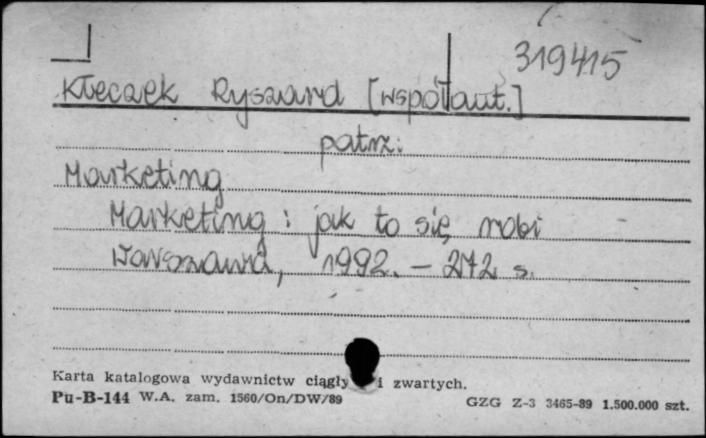 319415
Kłeczek Ryszard [współaut.]
patrz:
Marketing
Marketing : jak to się robi
Warszawa, 1992. - 272 s.
Karta katalogowa wydawnictw i zwartych.
Pu-B-144 W.A. zam. 1560/On/DW/89
GZG Z-3 3465-89 1.500.000 szt.